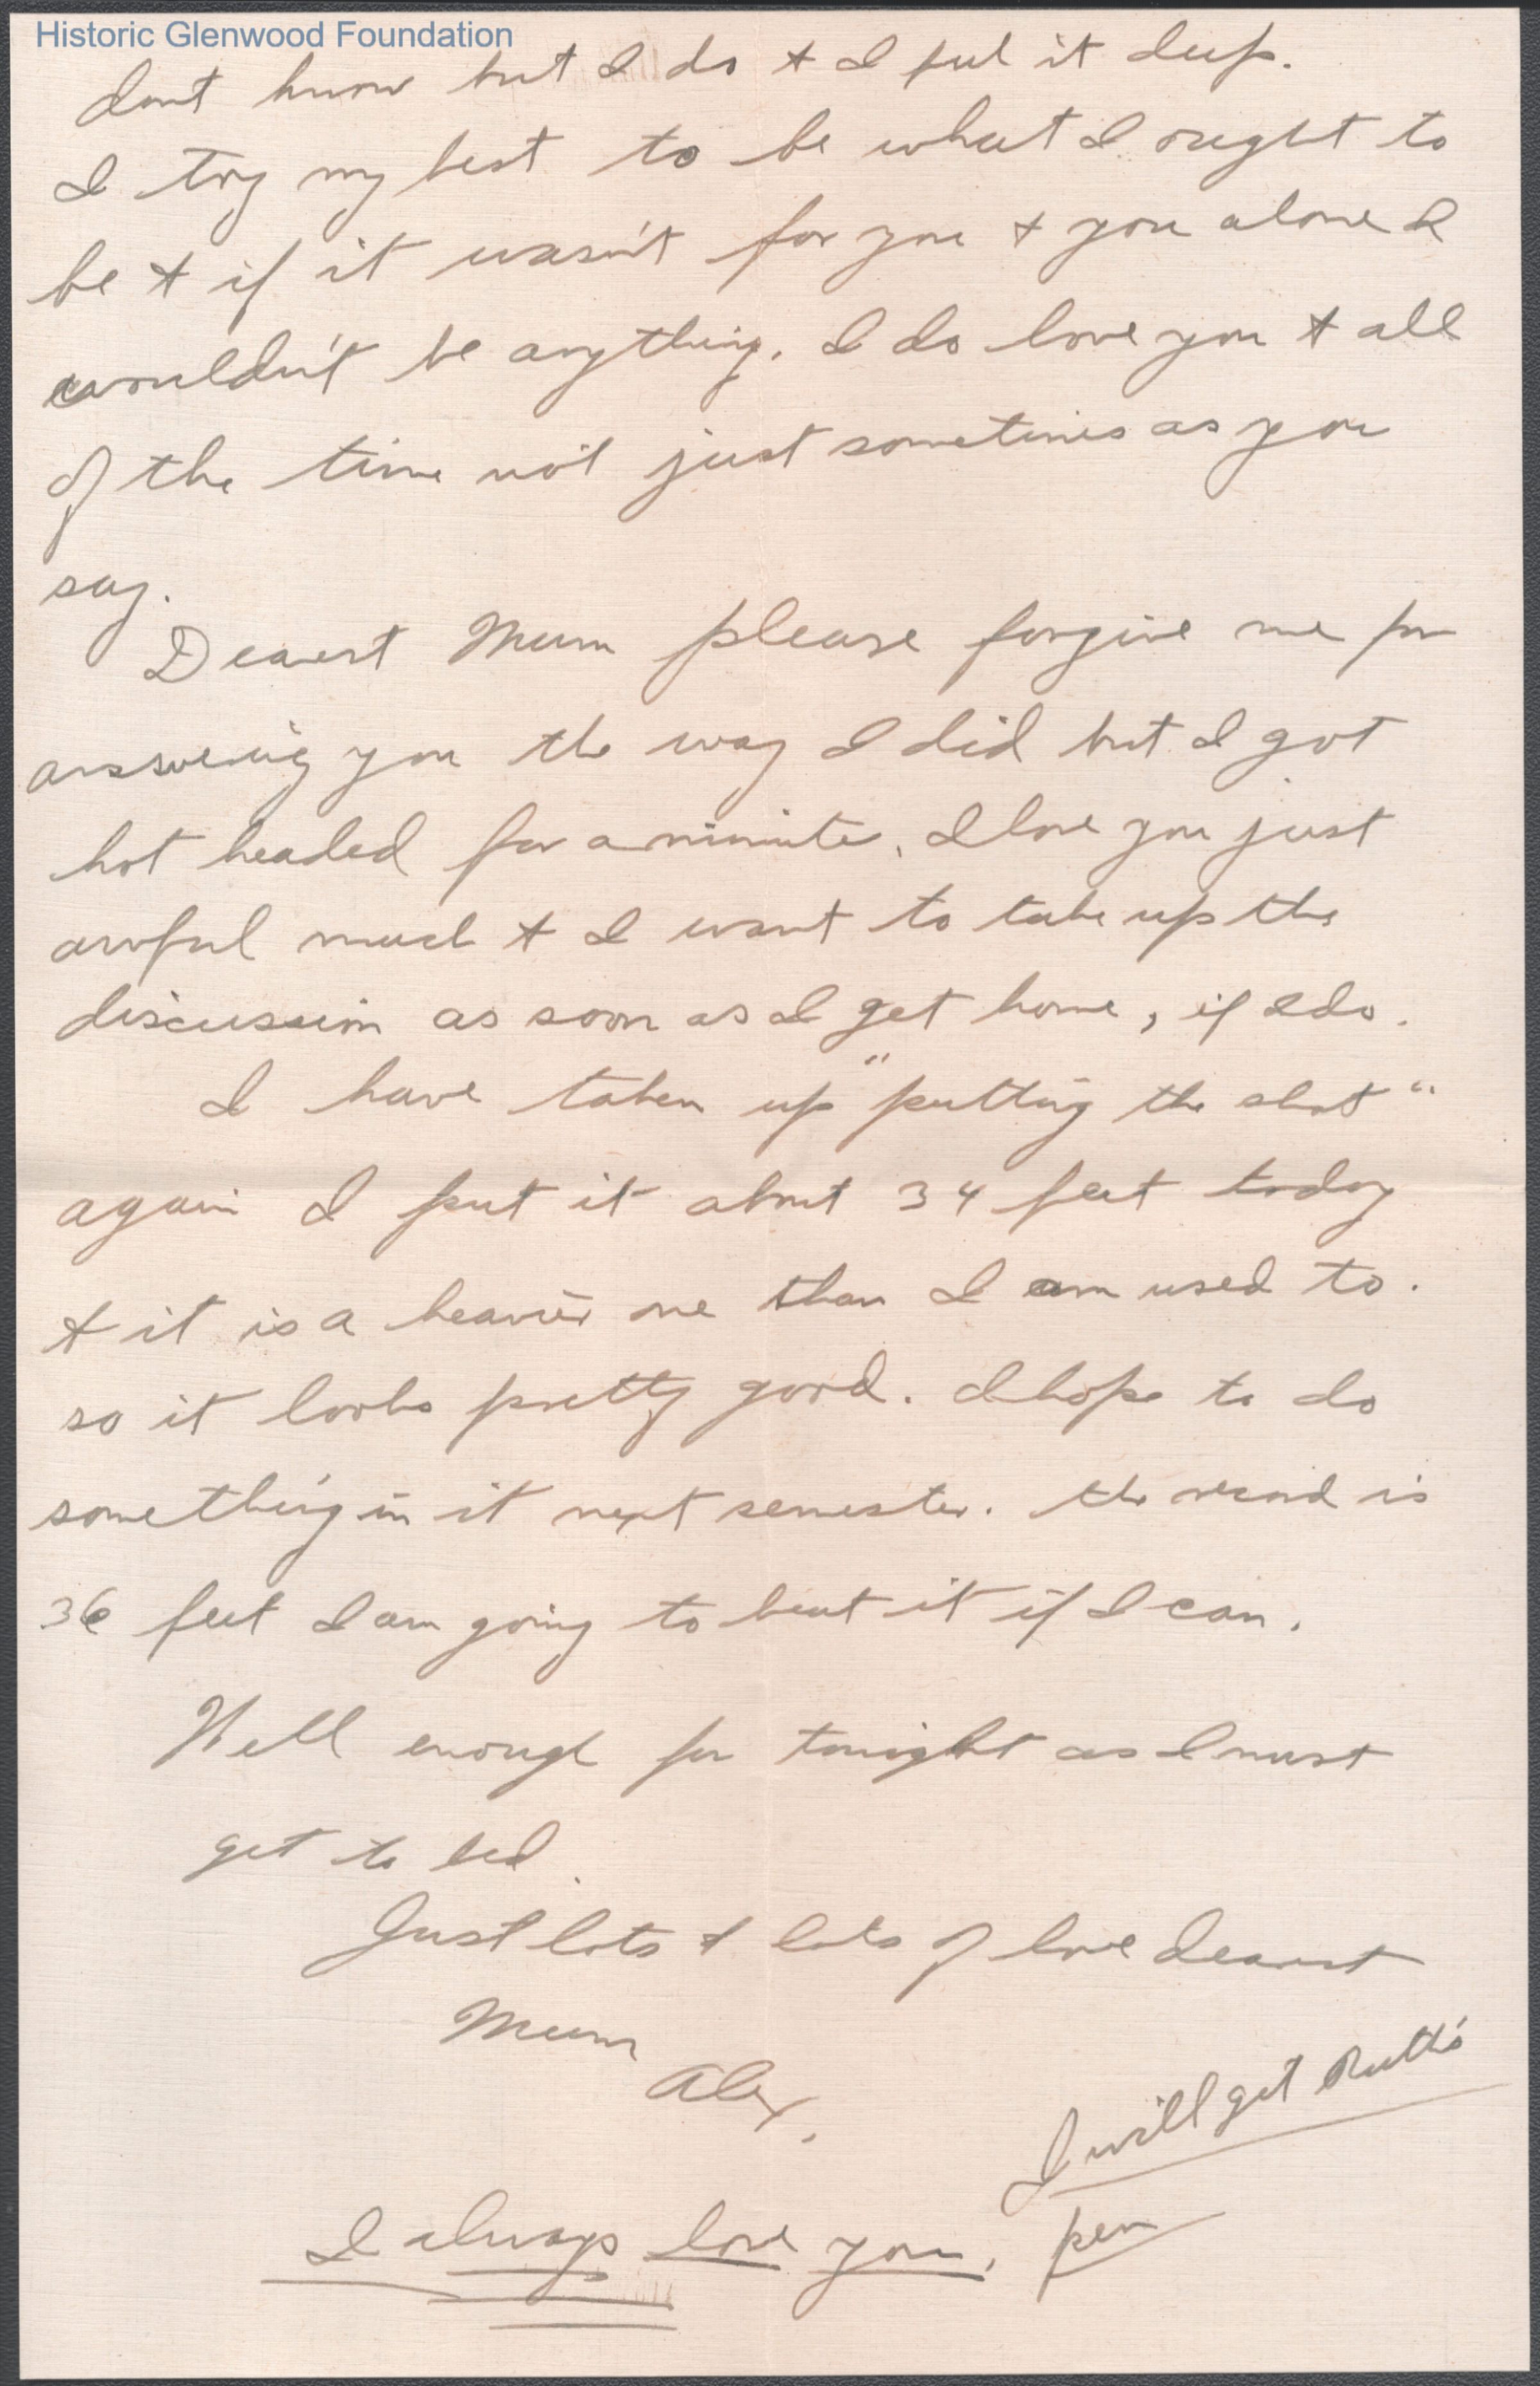 Historic Glenwood Foundation
dont know but I do & I feel it deep.
I try my best to be what I ought to
be & if it wasn't for you & you alone I
wouldn't be anything. I do love you & all
of the time not just sometimes as you
say.
Dearest Mum please forgive me for
answering you the way I did but I got
hot headed for a minute. I love you just
awful much & I want to take up the
discussion as soon as I get home, if I do.
I have taken up "putting the shot"
again I put it about 34 feet today
& it is a heavier one than I am used to.
so it looks pretty good. I hope to do
something in it next semester. the record is
36 feet I am going to beat it if I can.
Well enough for tonight as I must
get to bed.
Just lots & lots of love dearest
Mum
Alex.
I will get Ruth's
pen
I always love you.